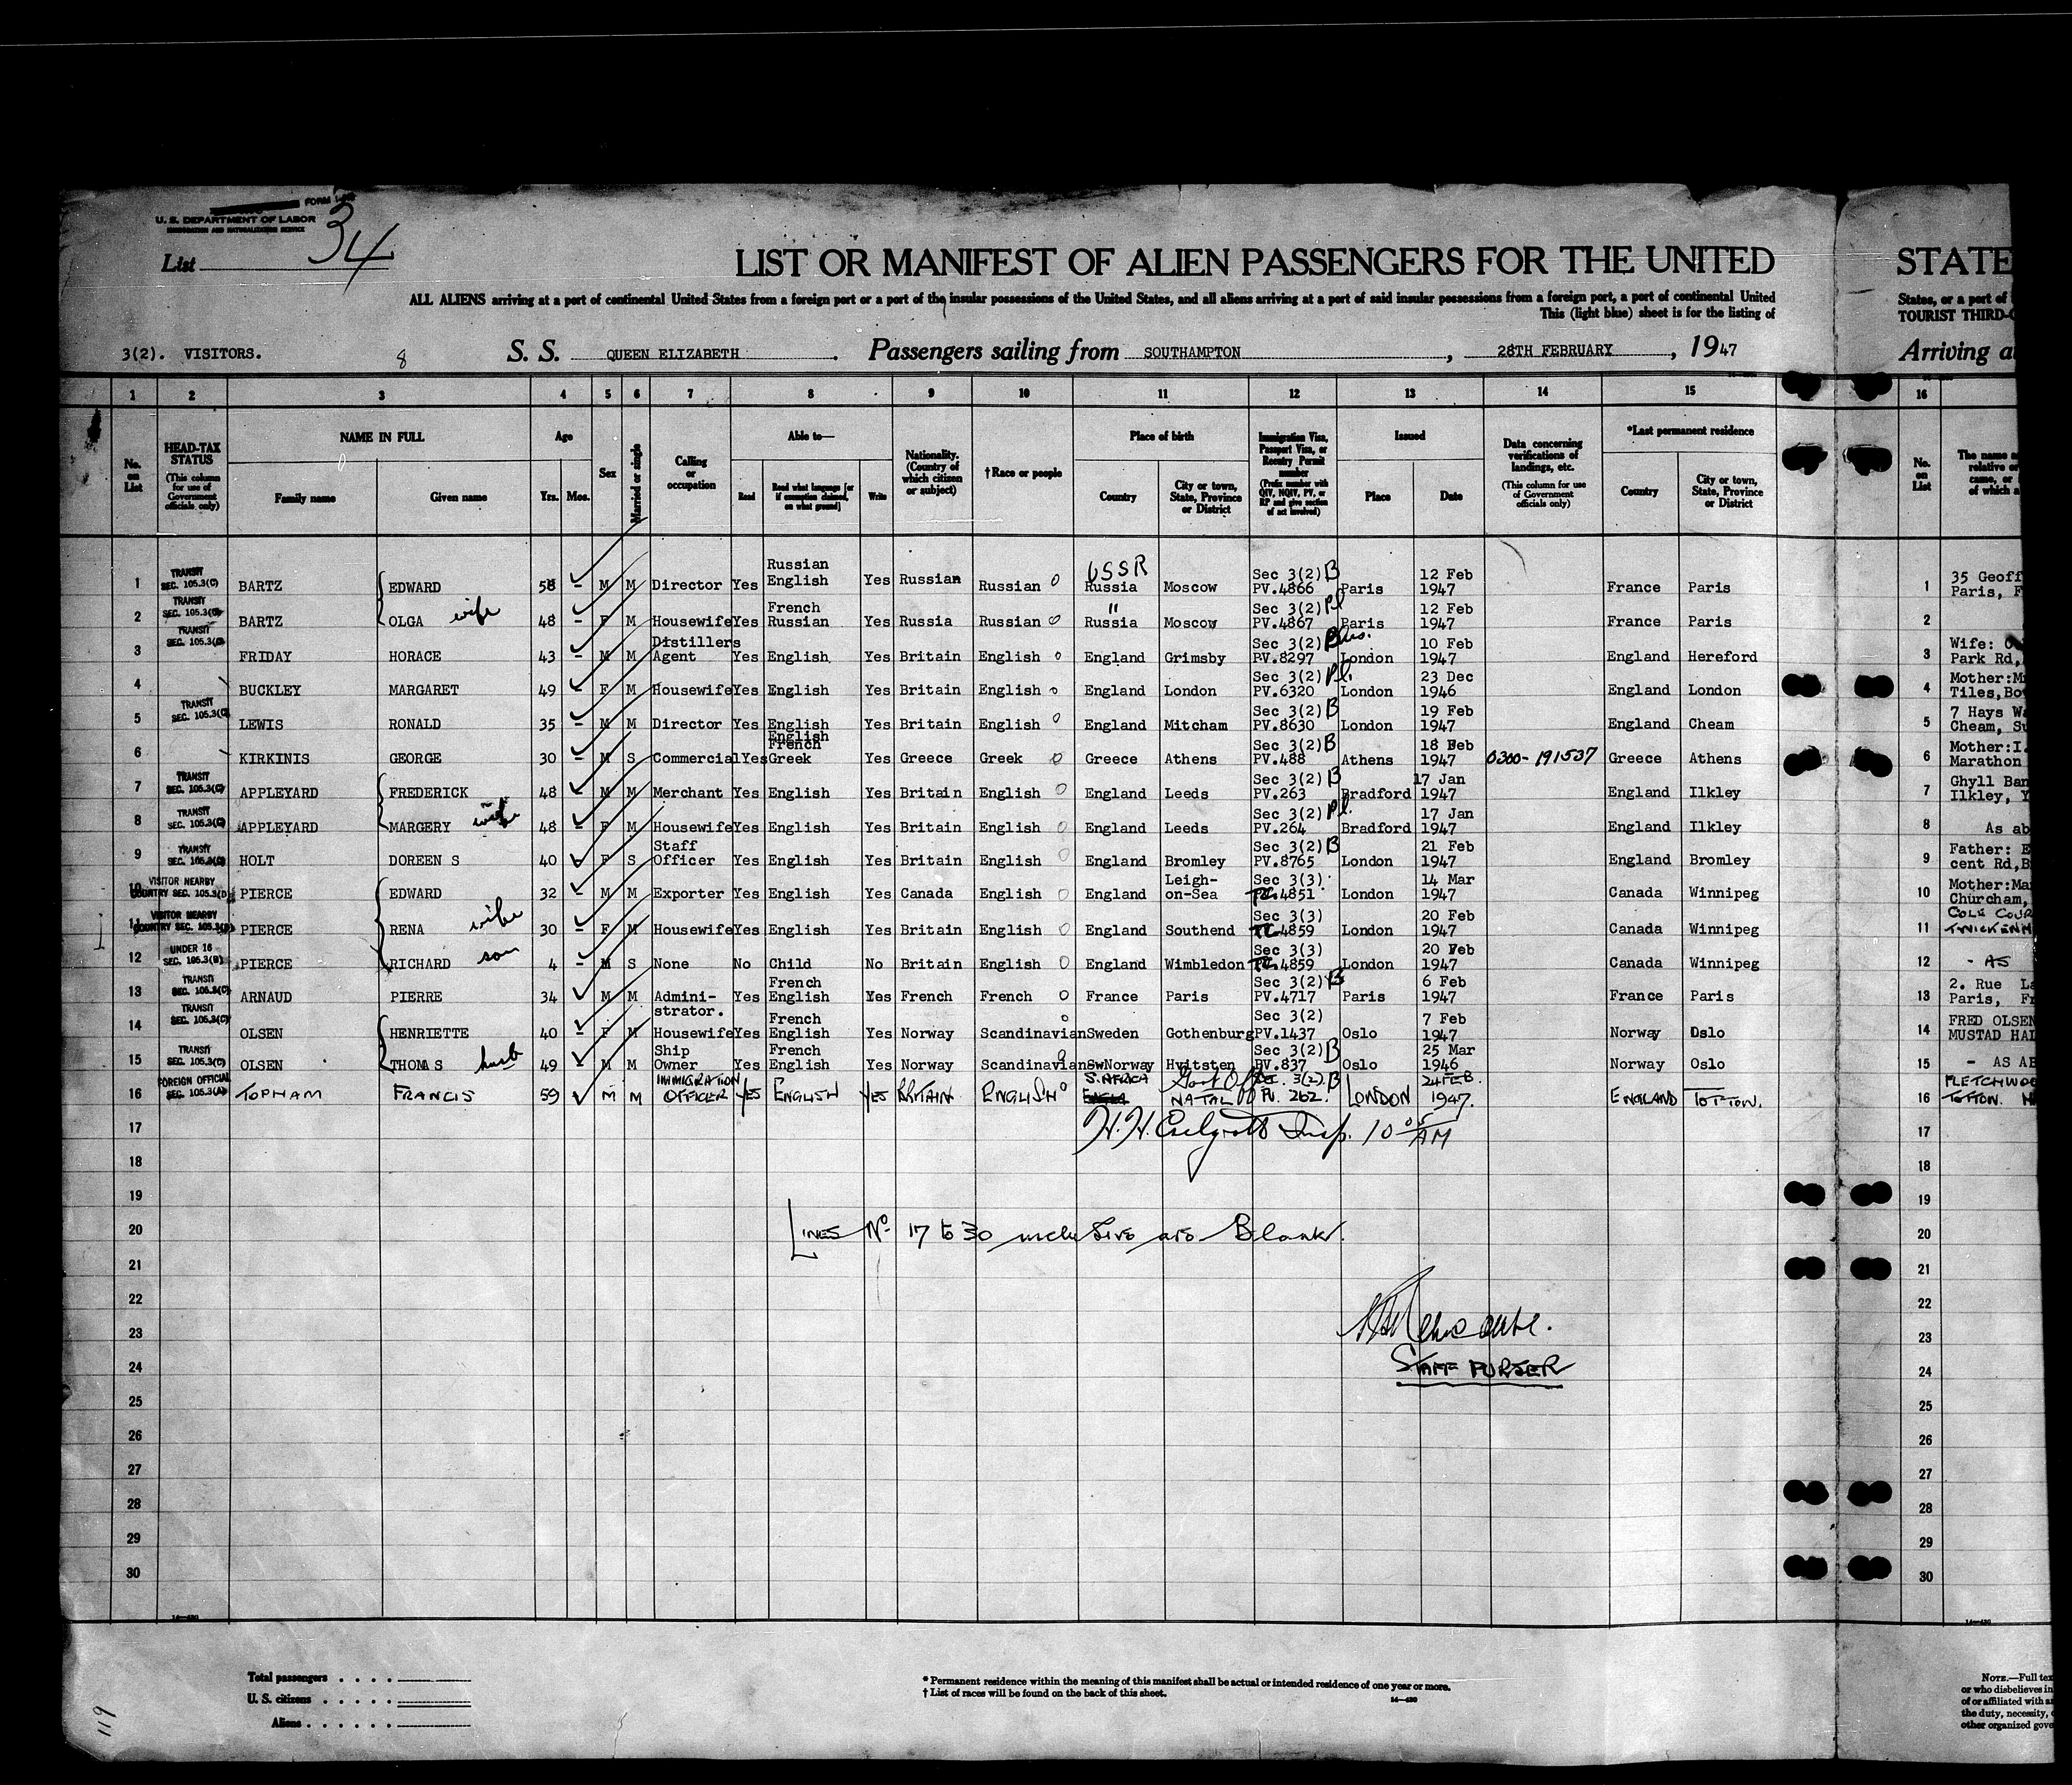 FORM
U. S. DEPARTMENT OF LABOR
IMMIGRATION AND NATURALIZATION SERVICE
List 34
LIST OR MANIFEST OF ALIEN PASSENGERS FOR THE UNITED STATE
ALL ALIENS arriving at a port of continental United States from a foreign port or a port of the insular possessions of the United States, and all aliens arriving at a port of said insular possessions from a foreign port, a port of continental United States, or a port of
This (light blue) sheet is for the listing of TOURIST THIRD-C
3(2). VISITORS. 8 S. S. QUEEN ELIZABETH . Passengers sailing from SOUTHAMPTON , 28TH FEBRUARY , 1947 Arriving a
1 2 3 4 5 6 7 8 9 10 11 12 13 14 15 16
No. on List
HEAD-TAX STATUS (This column for use of Government officials only)
NAME IN FULL
Family name Given name
Age
Yrs. Mos.
Sex
Married or single
Calling or occupation
Able to—
Read Read what language [or if exemption claimed, on what ground] Write
Nationality. (Country of which citizen or subject)
† Race or people
Place of birth
Country City or town, State, Province or District
Immigration Visa, Passport Visa, or Reentry Permit number (Prefix number with QIV, NQIV, PV, or RP and give section of act involved)
Issued
Place Date
Data concerning verifications of landings, etc. (This column for use of Government officials only)
*Last permanent residence
Country City or town, State, Province or District
No. on List
The name a relative or came, or of which a
1 TRANSIT SEC. 105.3(C) BARTZ EDWARD 58 - M M Director Yes Russian English Yes Russian Russian O USSR Russia Moscow Sec 3(2) B PV.4866 Paris 12 Feb 1947 France Paris 1 35 Geoff Paris, F
2 TRANSIT SEC. 105.3(C) BARTZ OLGA wife 48 - F M Housewife Yes French Russian Yes Russia Russian O " Russia Moscow Sec 3(2) Pl PV.4867 Paris 12 Feb 1947 France Paris 2
3 TRANSIT SEC. 105.3(C) FRIDAY HORACE 43 - M M Distillers Agent Yes English Yes Britain English O England Grimsby Sec 3(2) Bus. PV.8297 London 10 Feb 1947 England Hereford 3 Wife: Park Rd,
4 BUCKLEY MARGARET 49 - F M Housewife Yes English Yes Britain English O England London Sec 3(2) Pl. PV.6320 London 23 Dec 1946 England London 4 Mother:M Tiles,Bo
5 TRANSIT SEC. 105.3(C) LEWIS RONALD 35 - M M Director Yes English Yes Britain English O England Mitcham Sec 3(2) B PV.8630 London 19 Feb 1947 England Cheam 5 7 Hays W Cheam, Su
6 KIRKINIS GEORGE 30 - M S Commercial Yes English French Greek Yes Greece Greek O Greece Athens Sec 3(2) B PV.488 Athens 18 Feb 1947 0300-191537 Greece Athens 6 Mother:I. Marathon
7 TRANSIT SEC. 105.3(C) APPLEYARD FREDERICK 48 - M M Merchant Yes English Yes Britain English O England Leeds Sec 3(2) B PV.263 Bradford 17 Jan 1947 England Ilkley 7 Ghyll Ban Ilkley, Y
8 TRANSIT SEC. 105.3(C) APPLEYARD MARGERY wife 48 - F M Housewife Yes English Yes Britain English O England Leeds Sec 3(2) Pl. PV.264 Bradford 17 Jan 1947 England Ilkley 8 As ab
9 TRANSIT SEC. 105.3(C) HOLT DOREEN S 40 - F S Staff Officer Yes English Yes Britain English O England Bromley Sec 3(2) B PV.8765 London 21 Feb 1947 England Bromley 9 Father: E cent Rd,B
10 VISITOR NEARBY COUNTRY SEC. 105.3(D) PIERCE EDWARD 32 - M M Exporter Yes English Yes Canada English O England Leigh-on-Sea Sec 3(3) TC.4851 London 14 Mar 1947 Canada Winnipeg 10 Mother:Ma Churcham,
11 VISITOR NEARBY COUNTRY SEC. 105.3(D) PIERCE RENA wife 30 - F M Housewife Yes English Yes Britain English O England Southend Sec 3(3) TC.4859 London 20 Feb 1947 Canada Winnipeg 11 COLE COUR TWICKENH
12 UNDER 16 SEC. 105.3(B) PIERCE RICHARD son 4 - M S None No Child No Britain English O England Wimbledon Sec 3(3) TC.4859 London 20 Feb 1947 Canada Winnipeg 12 - AS
13 TRANSIT SEC. 105.3(C) ARNAUD PIERRE 34 M M Admini-strator. Yes French English Yes French French O France Paris Sec 3(2) B PV.4717 Paris 6 Feb 1947 France Paris 13 2. Rue La Paris, Fr
14 TRANSIT SEC. 105.3(C) OLSEN HENRIETTE 40 - F M Housewife Yes French English Yes Norway Scandinavian O Sweden Gothenburg Sec 3(2) PV.1437 Oslo 7 Feb 1947 Norway Oslo 14 FRED OLSEN MUSTAD HAL
15 TRANSIT SEC. 105.3(C) OLSEN THOMAS husb 49 - M M Ship Owner Yes French English Yes Norway Scandinavian Norway Hvitsten Sec 3(2) B PV.837 Oslo 25 Mar 1946 Norway Oslo 15 - AS AB
16 FOREIGN OFFICIAL SEC. 105.3(A) TOPHAM FRANCIS 59 M M IMMIGRATION OFFICER YES ENGLISH YES BRITAIN ENGLISH O S. AFRICA NATAL Govt Off Sec. 3(2). B PV. 262. LONDON 24 FEB. 1947. ENGLAND TOTTON. 16 FLETCHWOO TOTTON. H
17 Insp. 10 AM 17
18 18
19 19
20 LINES No 17 to 30 inclusive are Blank. 20
21 21
22 22
23 23
24 STAFF PURSER 24
25 25
26 26
27 27
28 28
29 29
30 30
14—430 14—430
Total passengers . . . .
U. S. citizens . . . . .
Aliens . . . . . .
* Permanent residence within the meaning of this manifest shall be actual or intended residence of one year or more.
† List of races will be found on the back of this sheet.
14—430
NOTE.—Full tex
or who disbelieves in
of or affiliated with a
the duty, necessity,
other organized gove
119